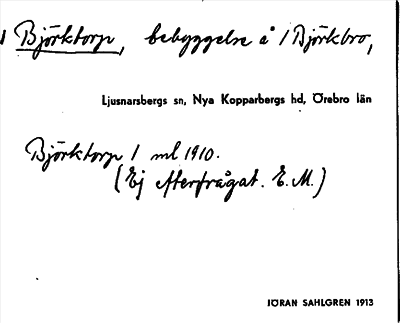 Björktorp, bebyggelse å 1 Björkbro,
Ljusnarsbergs sn, Nya Kopparbergs hd, Örebro län
Björktorp 1 ml 1910.
(Ej efterfrågat. E.M.)
JÖRAN SAHLGREN 1913